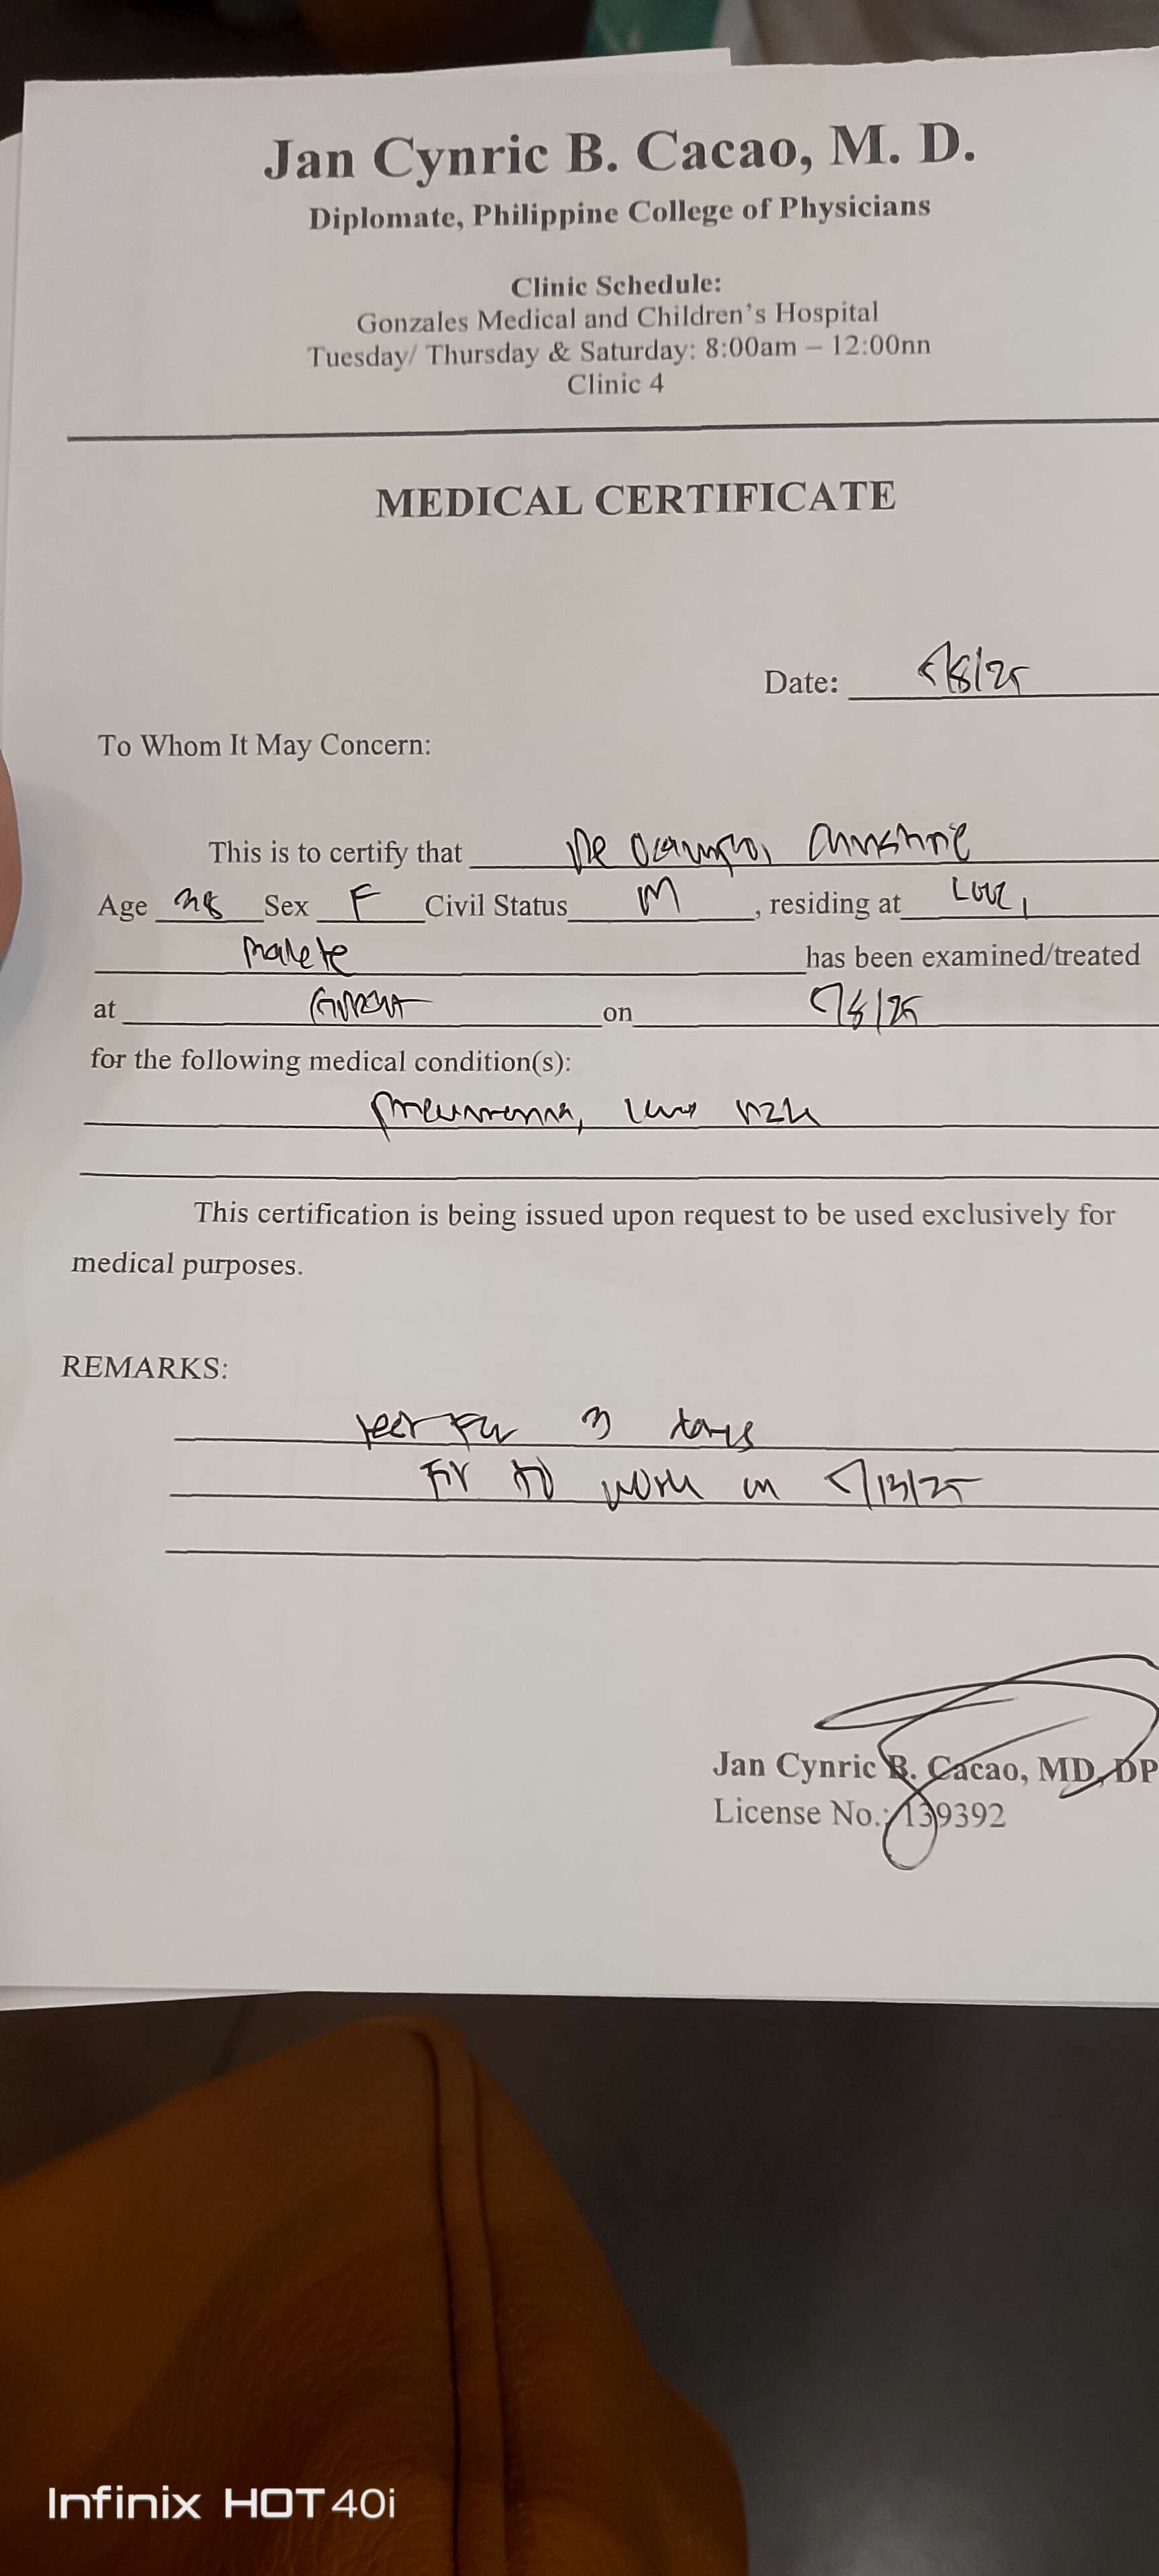 Jan Cynric B. Cacao, M. D.
Diplomate, Philippine College of Physicians
Clinic Schedule:
Gonzales Medical and Children's Hospital
Tuesday/ Thursday & Saturday: 8:00am – 12:00nn
Clinic 4
MEDICAL CERTIFICATE
Date: 5/8/25
To Whom It May Concern:
This is to certify that De Ocampo,
Age Sex F Civil Status M, residing at
has been examined/treated
at GMCH on 5/8/25
for the following medical condition(s):
pneumonia, low risk
This certification is being issued upon request to be used exclusively for
medical purposes.
REMARKS:
rest for 3 days
Fit to work on 5/13/25
Jan Cynric B. Cacao, MD, DP
License No.: 139392
Infinix HOT 40i